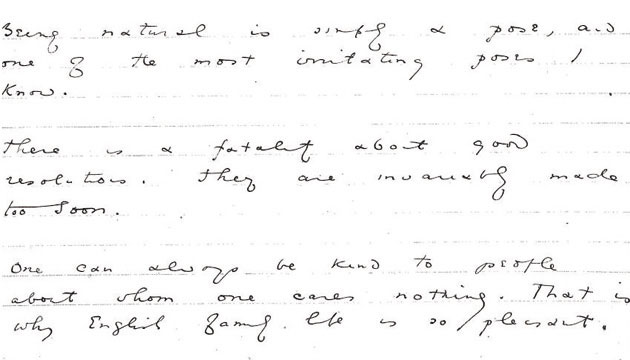 Being natural is simply a pose, and
one of the most irritating poses I
know.
There is a fatality about good
resolutions. They are invariably made
too soon.
One can always be kind to people
about whom one cares nothing. That is
why English family life is so pleasant.